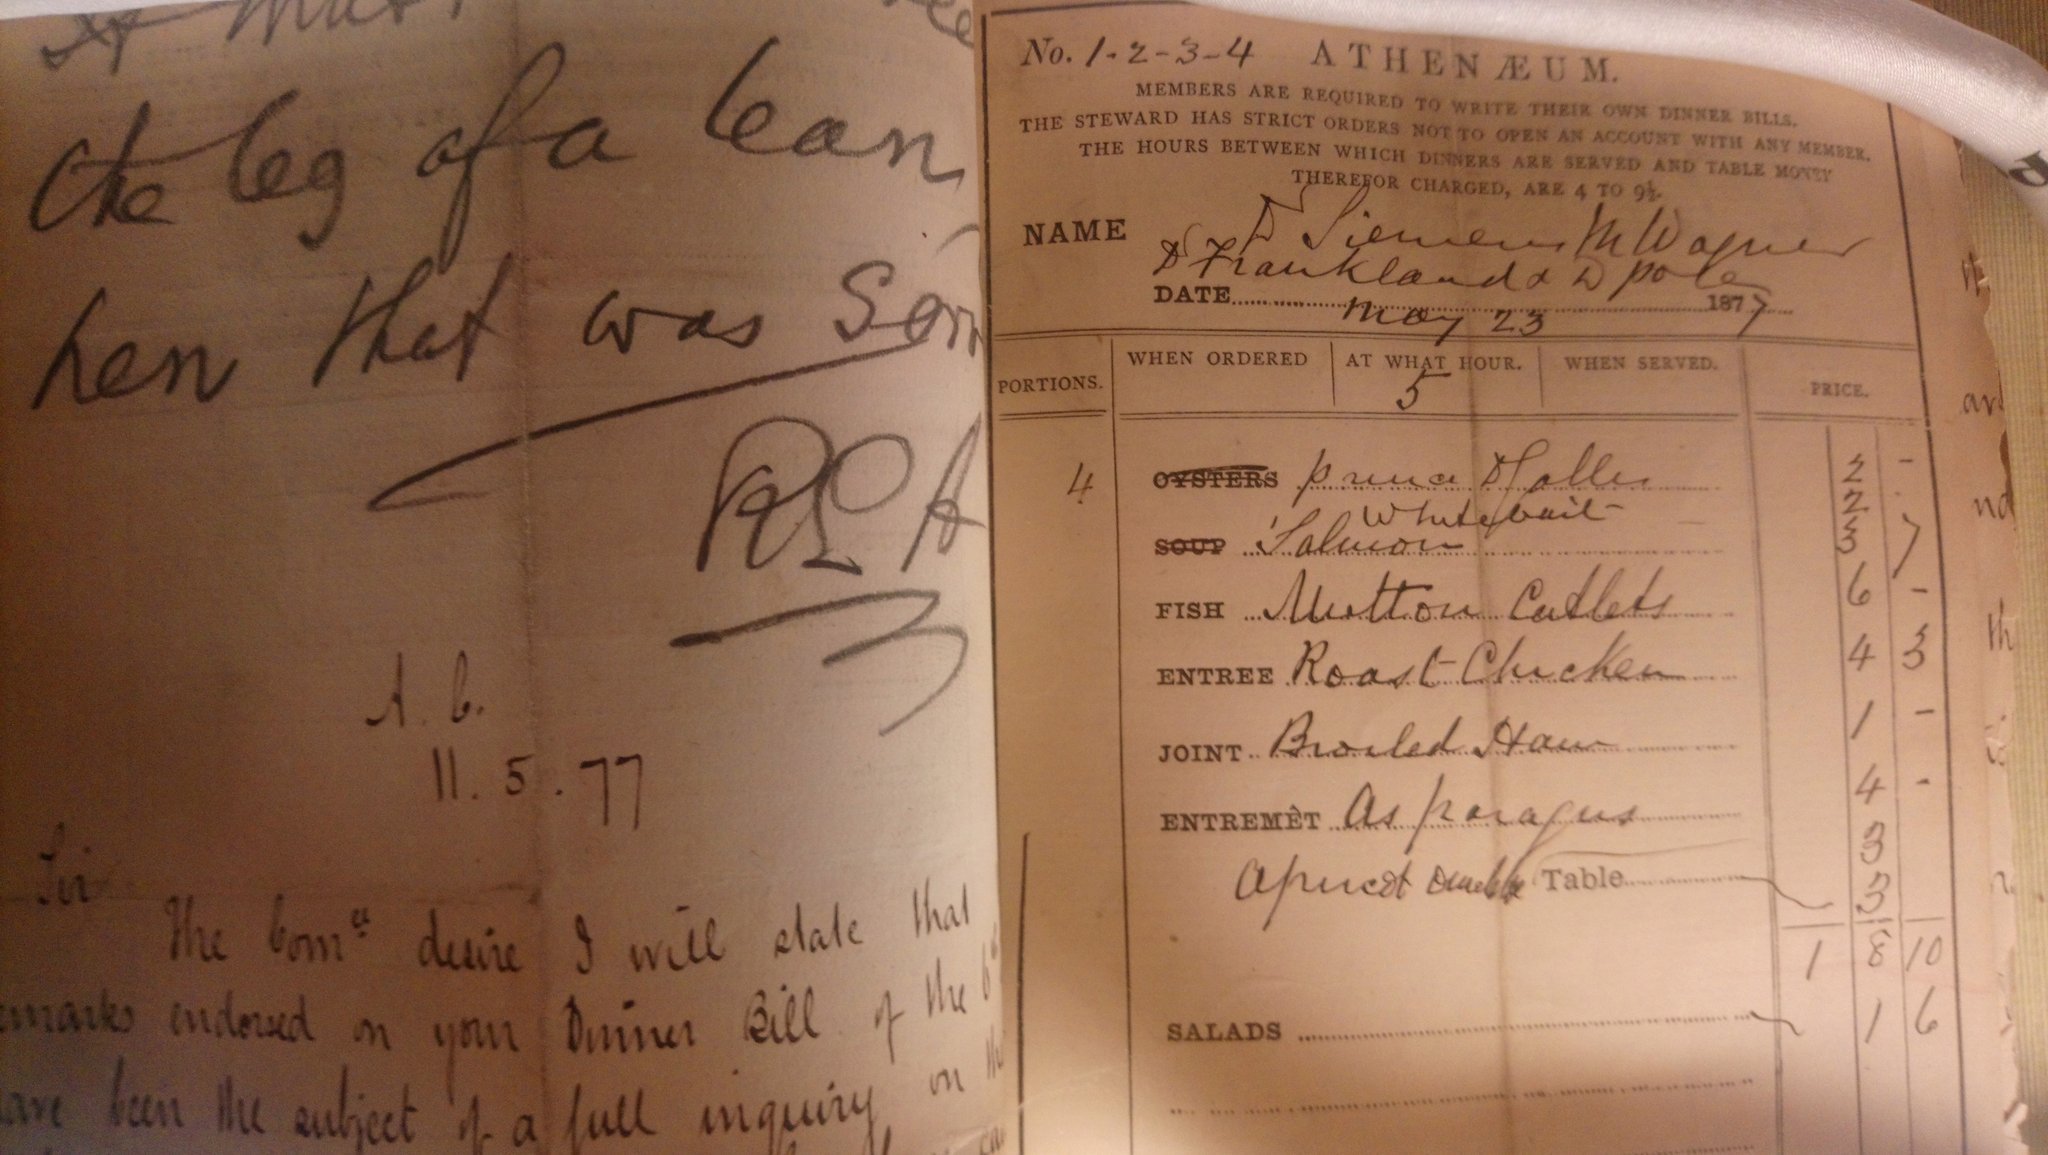 the leg of a lean
hen that was
A. C.
11. 5. 77
Sir
The Comee desire I will state that
remarks endorsed on your Dinner Bill of the 6th
have been the subject of a full inquiry on the
No. 1-2-3-4 ATHENÆUM.
MEMBERS ARE REQUIRED TO WRITE THEIR OWN DINNER BILLS.
THE STEWARD HAS STRICT ORDERS NOT TO OPEN AN ACCOUNT WITH ANY MEMBER.
THE HOURS BETWEEN WHICH DINNERS ARE SERVED AND TABLE MONEY
THEREFOR CHARGED, ARE 4 TO 9½.
NAME D Siemens M Wagner
D Frankland & D Pole
DATE May 23 1877
WHEN ORDERED AT WHAT HOUR. WHEN SERVED.
PORTIONS. 5 PRICE.
4 OYSTERS 2 -
Whitebait 2
SOUP Salmon 3 7
FISH Mutton Cutlets 6 -
ENTREE Roast Chicken 4 3
JOINT Broiled Ham 1 -
ENTREMÊT Asparagus 4 -
3
Apricot Table 3
1 8 10
SALADS 1 6